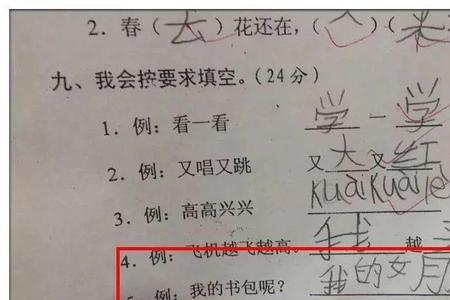 2. 春(去)花还在,(人)(来
九、我会按要求填空。(24分)
1. 例：看一看 学一学
2. 例：又唱又跳 又大又红
3. 例：高高兴兴 kuàikuàilè
4. 例：飞机越飞越高。 我 越
例：我的书包呢？ 我的女朋